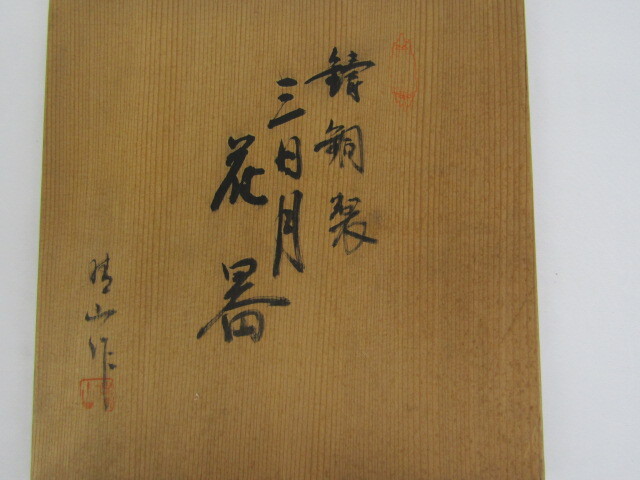 鋳銅製
三日月
花器
晴山作